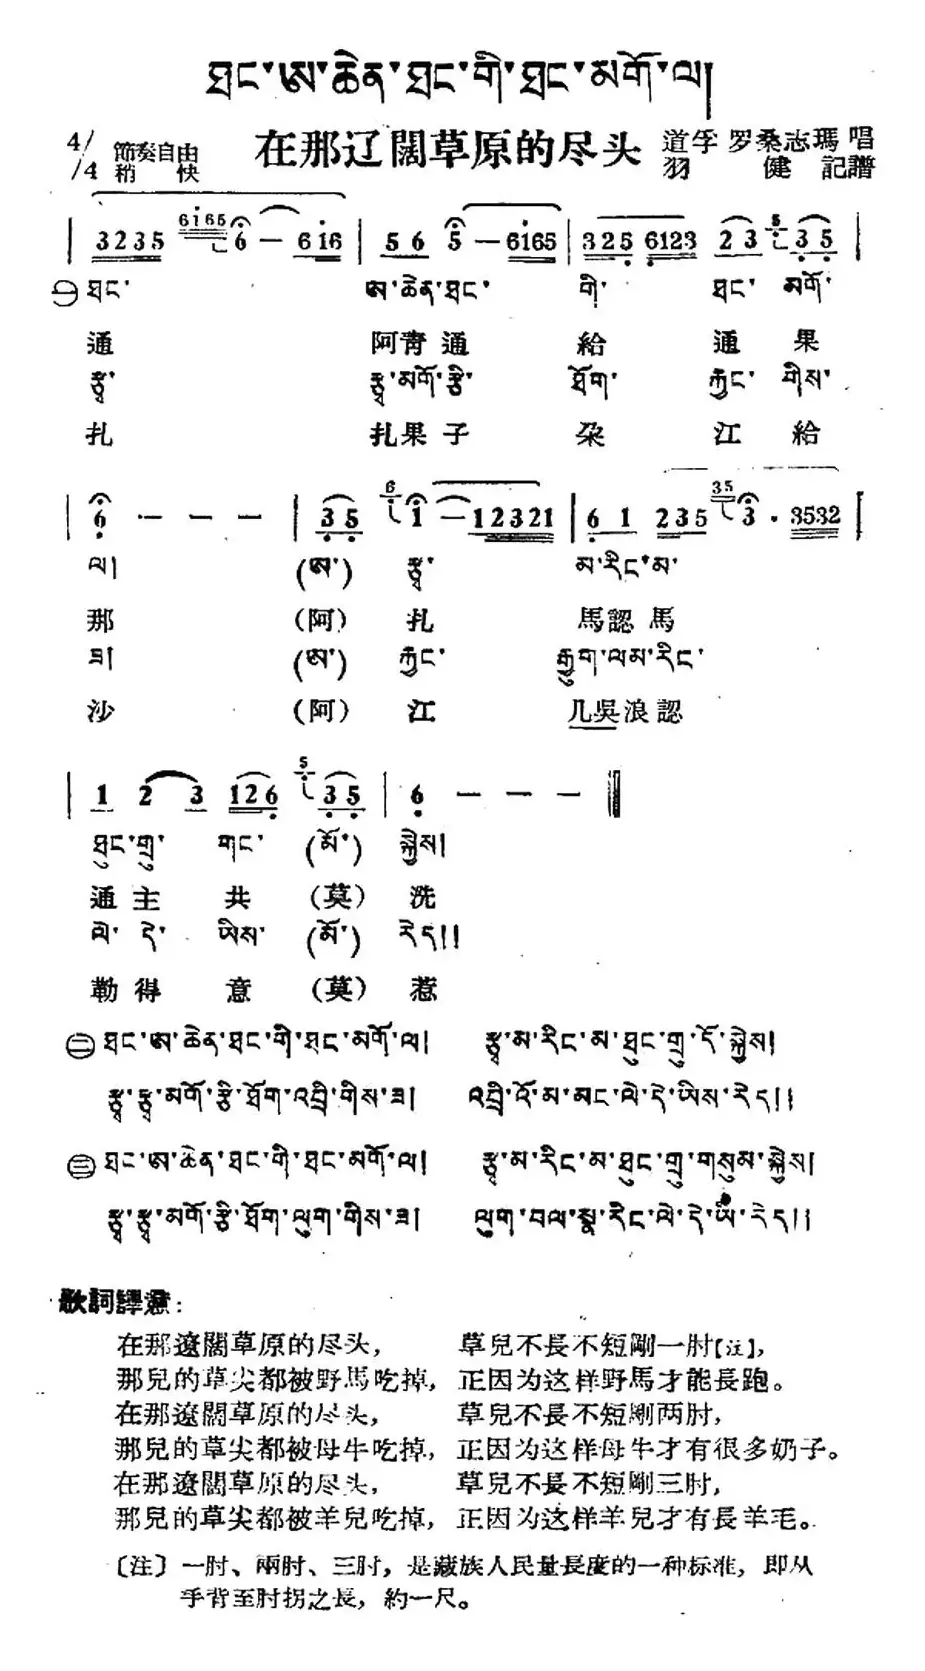 ཐང་ཨ་ཆེན་ཐང་གི་ཐང་མགོ་ལ།
在那辽闊草原的尽头
4/4 節奏自由 稍快
道孚 罗桑志瑪 唱
羽健 記譜
3235 6165 6 — 616 | 56 5 — 6165 | 325 6123 23 5 35 |
㊀ ཐང་ ཨ་ཆེན་ཐང་ གི་ ཐང་ མགོ་
通 阿青通 給 通 果
རྩྭ་ རྩྭ་མགོ་རྩེ་ ཐོག་ རྐྱང་ གིས་
扎 扎果子 朶 江 給
6 · — — — | 35 6 1 — 12321 | 6 1 235 35 3 · 3532 |
ལ། (ཨ་) རྩྭ་ མ་རིང་མ་
那 (阿) 扎 馬認馬
ཟ། (ཨ་) རྐྱང་ རྒྱུག་ལམ་རིང་
沙 (阿) 江 几吳浪認
1 2 3 126 5 35 | 6 — — —
ཐུང་གྲུ་ གང་ (མོ་) སྐྱེས།
通主 共 (莫) 洗
ལེ་ དེ་ ཡིས་ (མོ་) རེད།།
勒得 意 (莫) 惹
㊁ ཐང་ཨ་ཆེན་ཐང་གི་ཐང་མགོ་ལ། རྩྭ་མ་རིང་མ་ཐུང་གྲུ་དོ་སྐྱེས།
རྩྭ་རྩྭ་མགོ་རྩེ་ཐོག་འབྲི་གིས་ཟ། འབྲི་འོ་མ་མང་ལེ་དེ་ཡིས་རེད།།
㊂ ཐང་ཨ་ཆེན་ཐང་གི་ཐང་མགོ་ལ། རྩྭ་མ་རིང་མ་ཐུང་གྲུ་གསུམ་སྐྱེས།
རྩྭ་རྩྭ་མགོ་རྩེ་ཐོག་ལུག་གིས་ཟ། ལུག་བལ་སྣ་རིང་ལེ་དེ་ཡི་རེད།།
歌詞譯意：
在那遼闊草原的尽头， 草兒不長不短剛一肘[注]，
那兒的草尖都被野馬吃掉， 正因为这样野馬才能長跑。
在那遼闊草原的尽头， 草兒不長不短剛两肘，
那兒的草尖都被母牛吃掉， 正因为这样母牛才有很多奶子。
在那遼闊草原的尽头， 草兒不長不短剛三肘，
那兒的草尖都被羊兒吃掉， 正因为这样羊兒才有長羊毛。
〔注〕一肘、兩肘、三肘，是藏族人民量長度的一种标准，即从
手背至肘拐之長，約一尺。